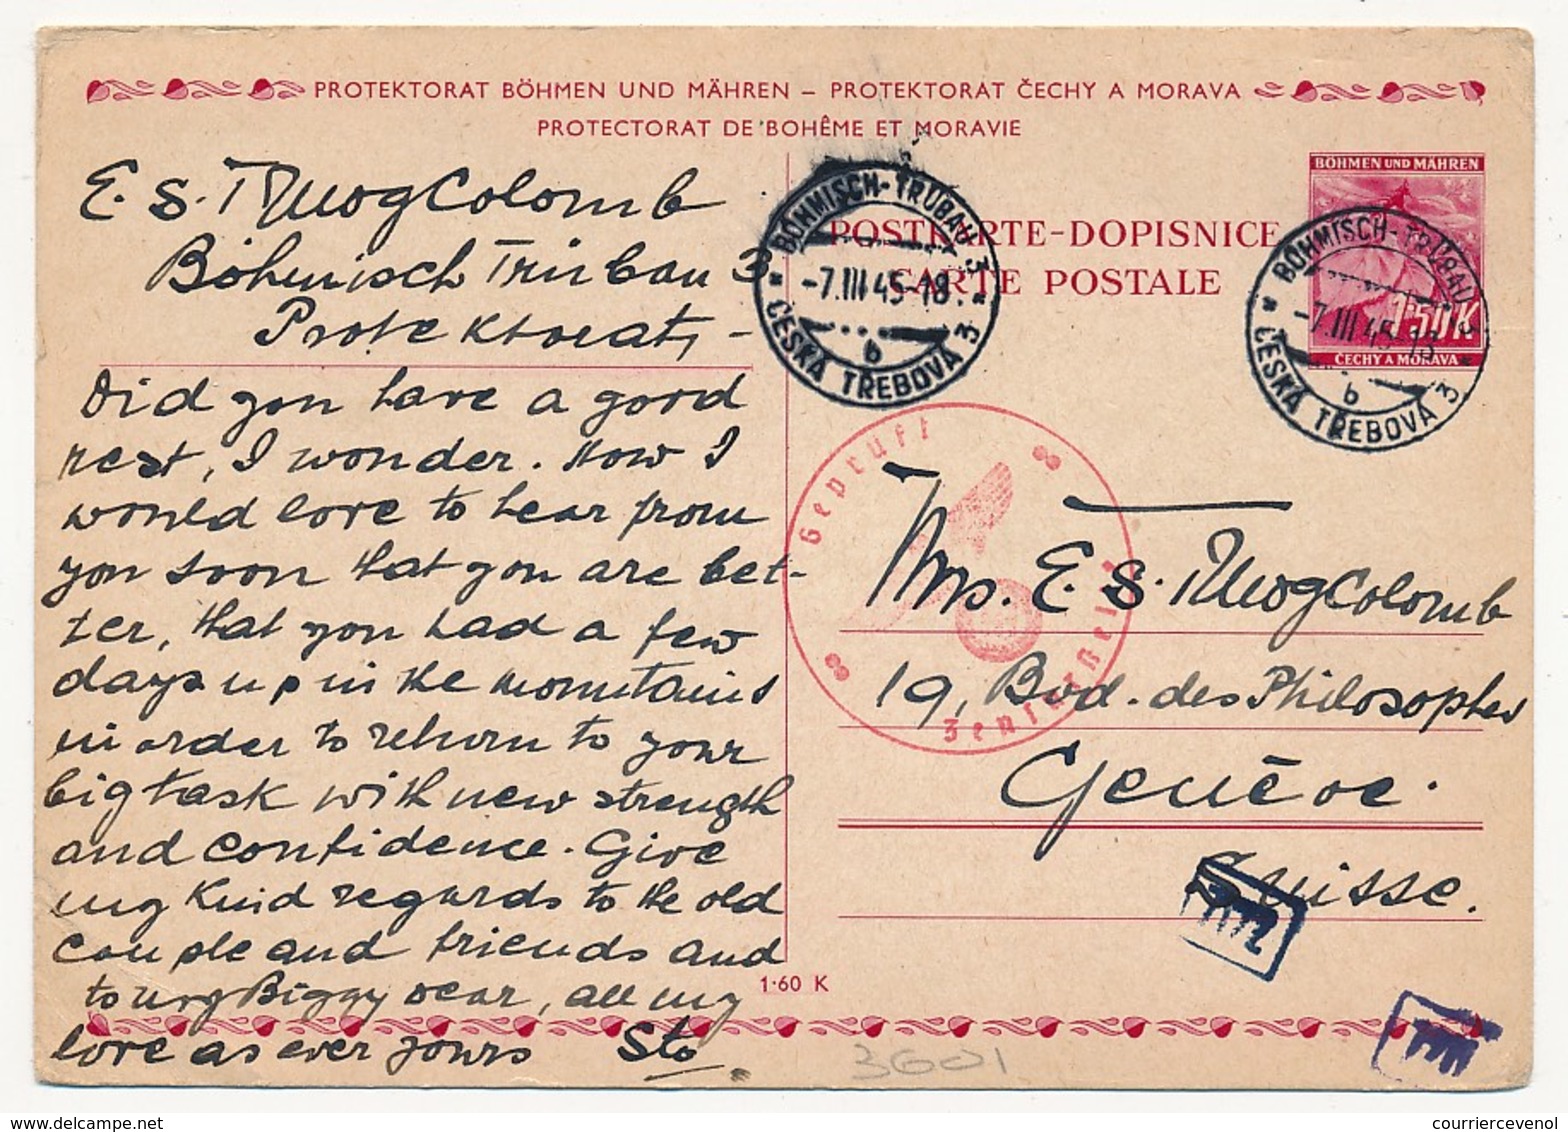 PROTEKTORAT BÖHMEN UND MÄHREN – PROTEKTORAT ČECHY A MORAVA
PROTECTORAT DE BOHÊME ET MORAVIE
E. S.
Böhmisch Trübau 3
Protektorat, –
Did you have a good
rest, I wonder. How I
would love to hear from
you soon that you are bet-
ter, that you had a few
days up in the mountains
in order to return to your
big task with new strength
and confidence. Give
my kind regards to the old
couple and friends and
to my Biggy dear, all my
love as ever yours Sto.
BÖHMISCH-TRÜBAU 3
-7.III 45-18
b
ČESKÁ TŘEBOVÁ 3
POSTKARTE-DOPISNICE
CARTE POSTALE
BÖHMEN UND MÄHREN
1·50 K
ČECHY A MORAVA
BÖHMISCH-TRÜBAU 3
-7.III 45-18
b
ČESKÁ TŘEBOVÁ 3
Geprüft
Zensurstelle
Mrs. E. S.
19, Bvd. des Philosophes
Genève.
Suisse.
1·60 K
3601
courriercevenol